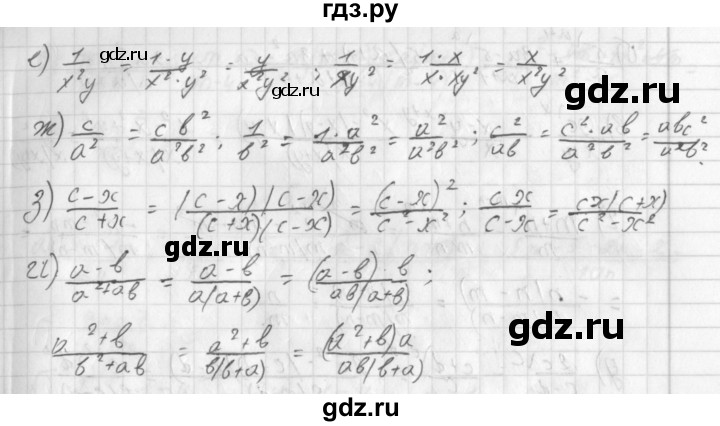 гдз.ру
е) 1/x²y = 1·y/x²·y² = y/x²y² ; 1/xy² = 1·x/x·xy² = x/x²y²
gdz.ru gdz.ru
ж) c/a² = cb²/a²b² ; 1/b² = 1·a²/a²b² = a²/a²b² ; c²/ab = c²·ab/a²b² = abc²/a²b² .
з) c-x/c+x = (c-x)(c-x)/(c+x)(c-x) = (c-x)²/c²-x² ; cx/c-x = cx(c+x)/c²-x²
gdz.ru
и) a-b/a²+ab = a-b/a(a+b) = (a-b)b/ab(a+b) ;
gdz.ru gdz.ru
a²+b/b²+ab = a²+b/b(b+a) = (a²+b)a/ab(b+a)
gdz.ru